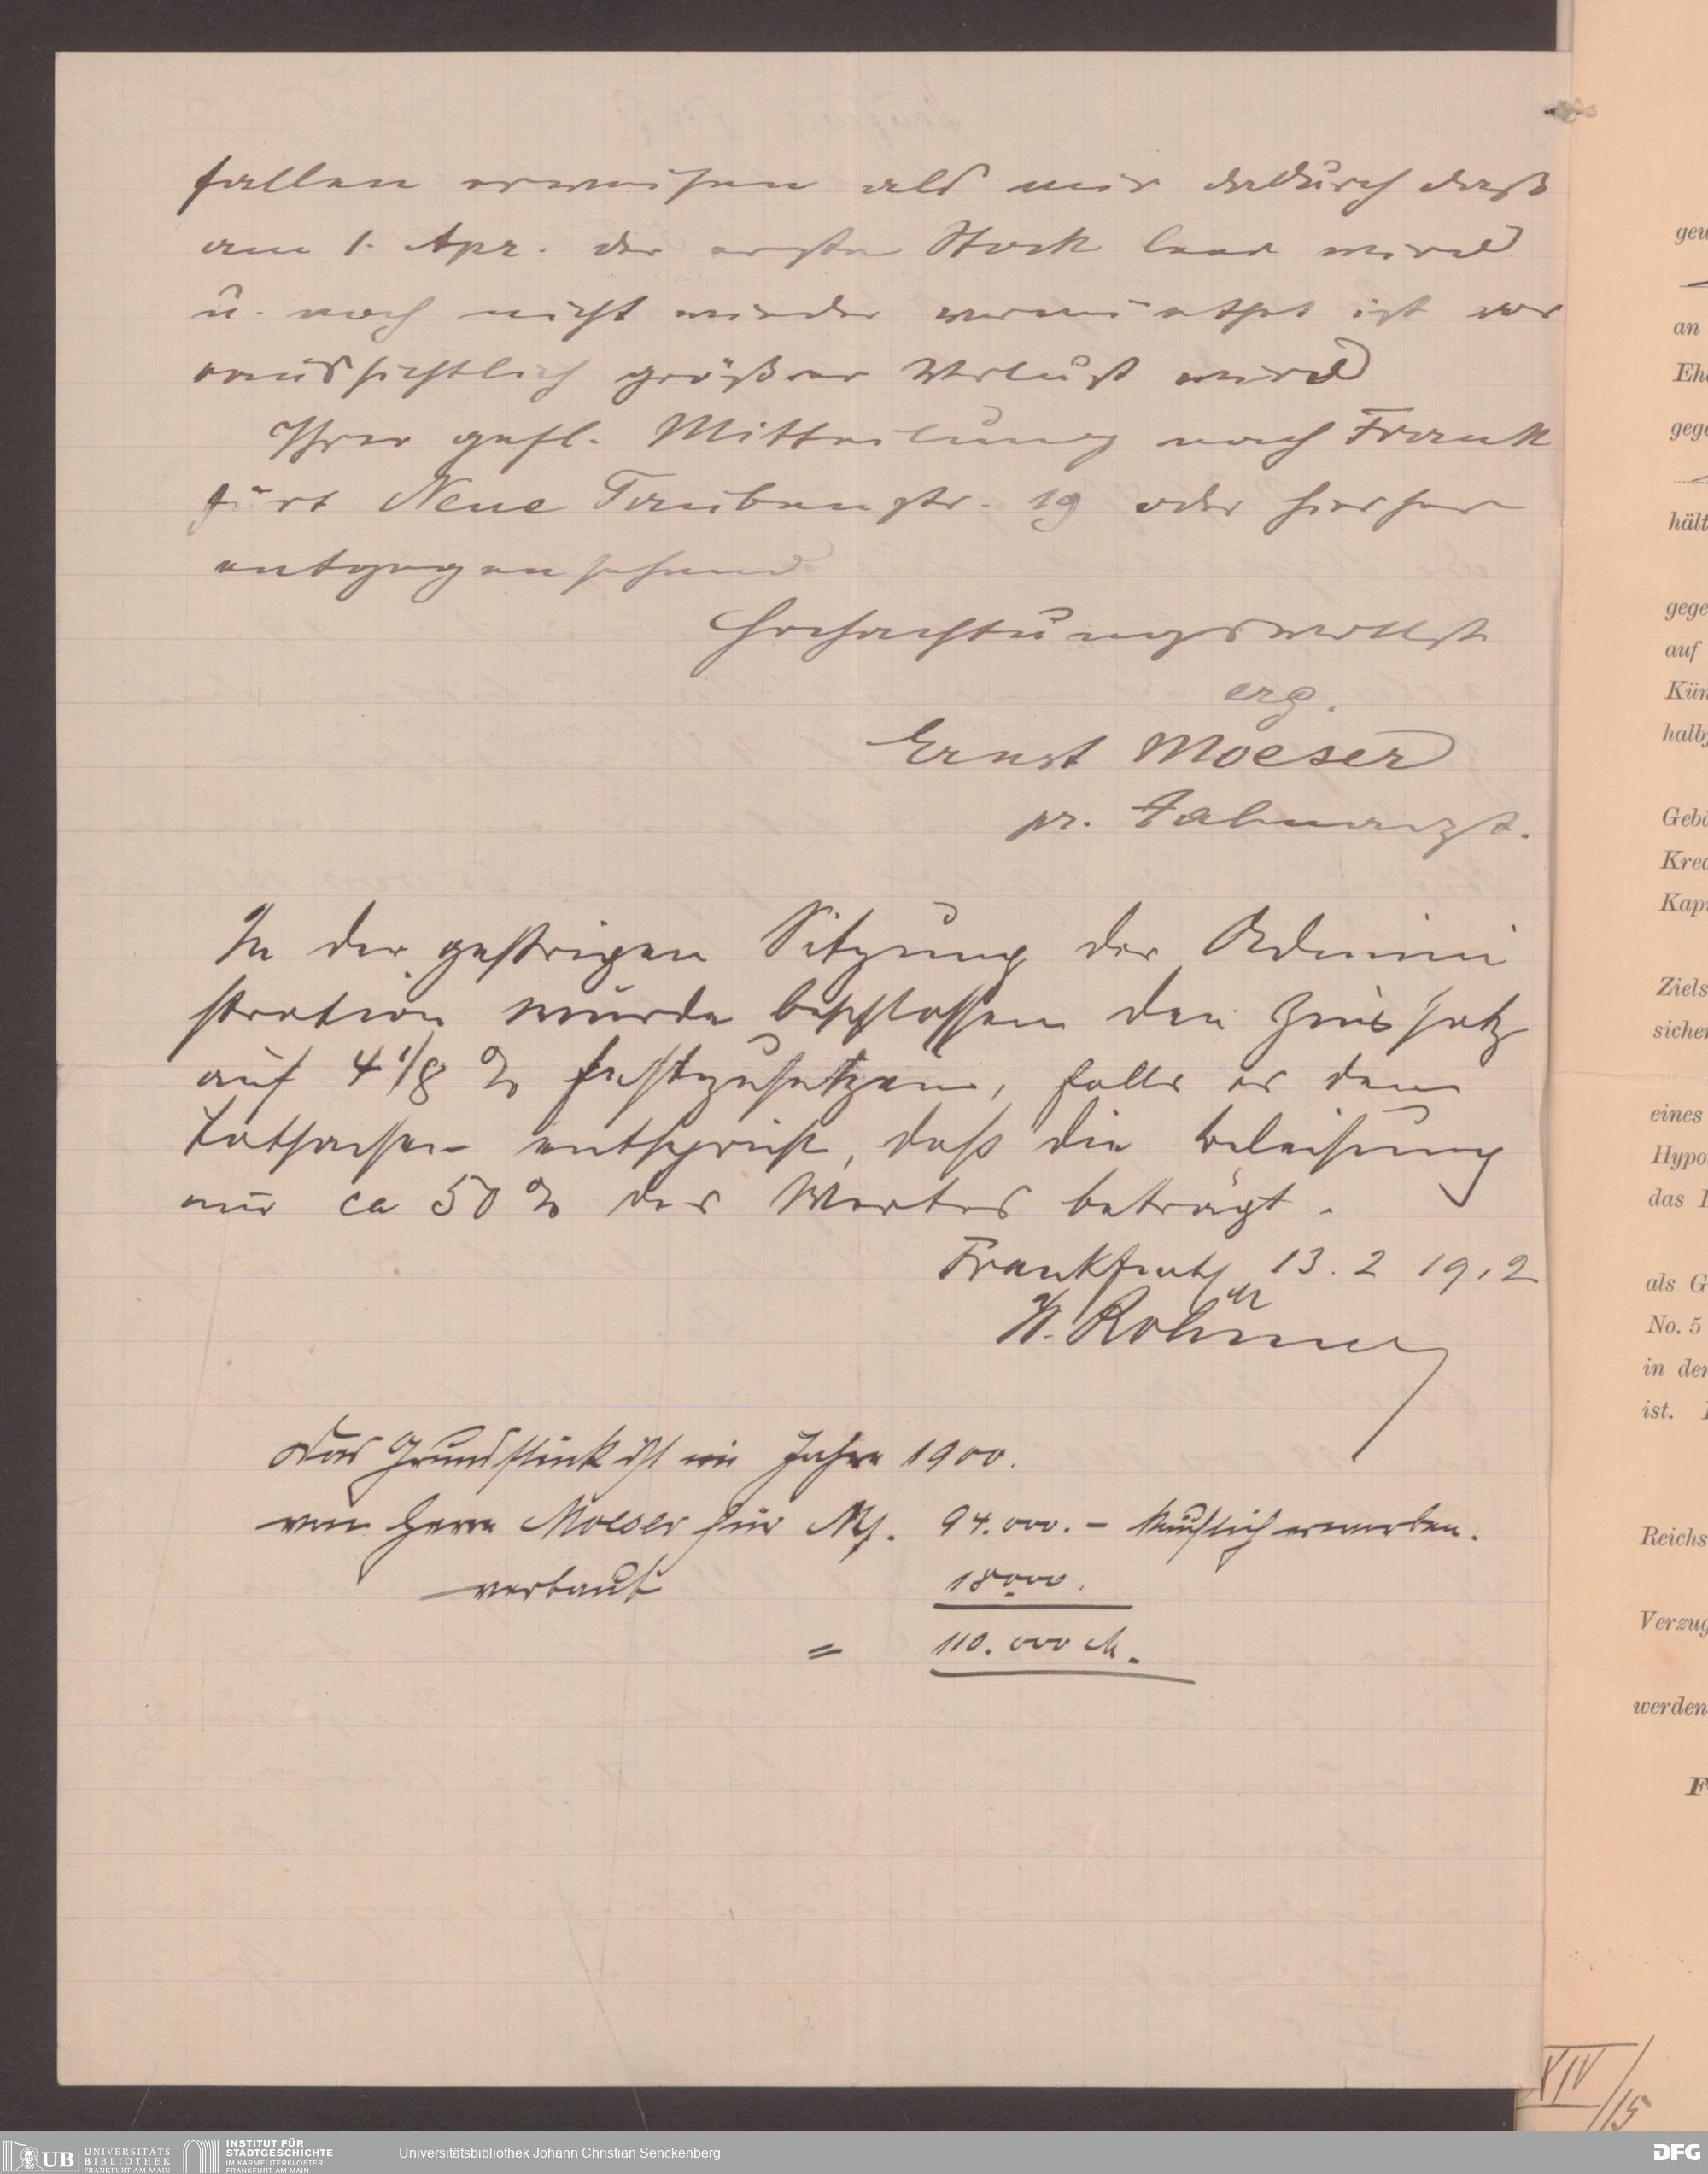 fallen erweisen als mir dadurch daß
am 1. Apr. der erste Stock leer wird
u. noch nicht wieder vermiethet ist vor
aussichtlich größrer Verlust wird
Ihrer gefl. Mitteilung nach Frank
furt Neue Taubenstr. 19 oder hierher
entgegensehend
Hochachtungsvollst
erg.
Ernst Moeser
pr. Zahnarzt.
In der gestrigen Sitzung der Admini
stration wurde beschlossen den Zinssatz
auf 4 1/8 % festzusetzen, falls es den
Tatsachen entspricht, daß die Beleihung
nur ca 50 % des Wertes beträgt.
Frankfurt 13. 2 1912
Rohmer
Das Grundstück ist im Jahre 1900.
von Herrn Moeser für Mk. 94.000.- käuflich erworben.
verbaut 18000.
= 110.000 M.
geu
an
Ehe
gege
hält
gege
auf
Kün
halbj
Gebä
Kred
Kapi
Ziels
sicher
eines
Hypo
das
als G
No. 5
in der
ist.
Reichs
Verzug
werden
F
XIV/15
UB UNIVERSITÄTS
BIBLIOTHEK
FRANKFURT AM MAIN
INSTITUT FÜR
STADTGESCHICHTE
IM KARMELITERKLOSTER
FRANKFURT AM MAIN
Universitätsbibliothek Johann Christian Senckenberg
DFG